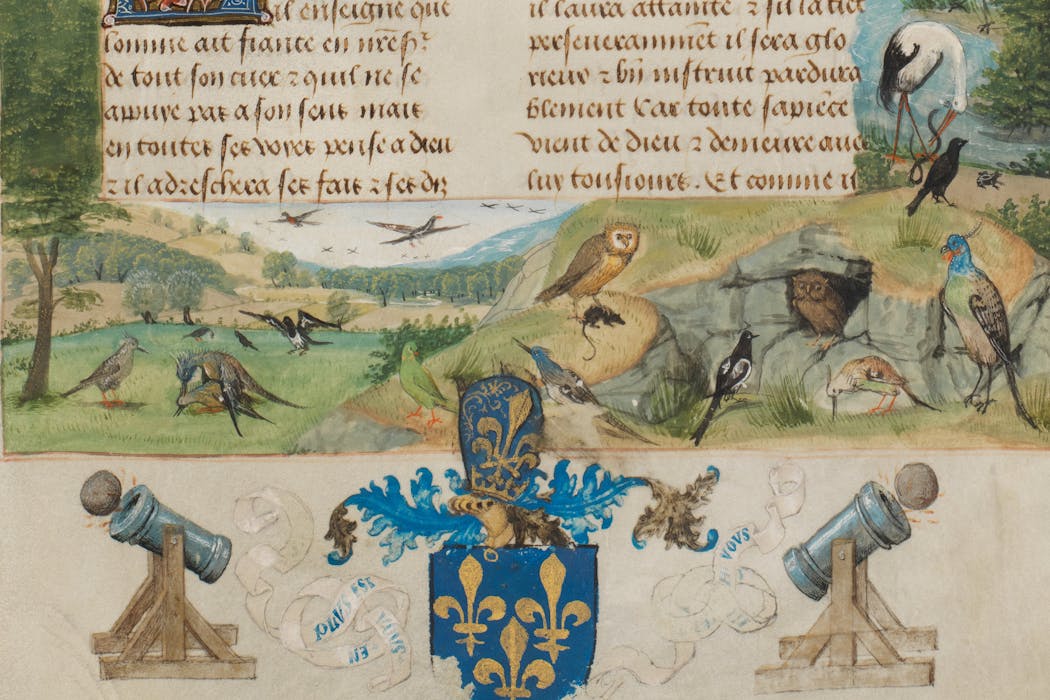 il enseigne que
lomme ait fiance en
de tout son cuer ⁊ quil ne se
apuye pas a son sens mais
en toutes ses voyes pense a dieu
⁊ il adreschera ses fais ⁊ ses
il laura attainte ⁊ sil la
perseueramment il sera glo
rieux ⁊ bn̄ instruit pardura
blement Car toute sapiēce
vient de dieu ⁊ demeure auec
luy tousiours. Et comme il
EST
EN
VOUS